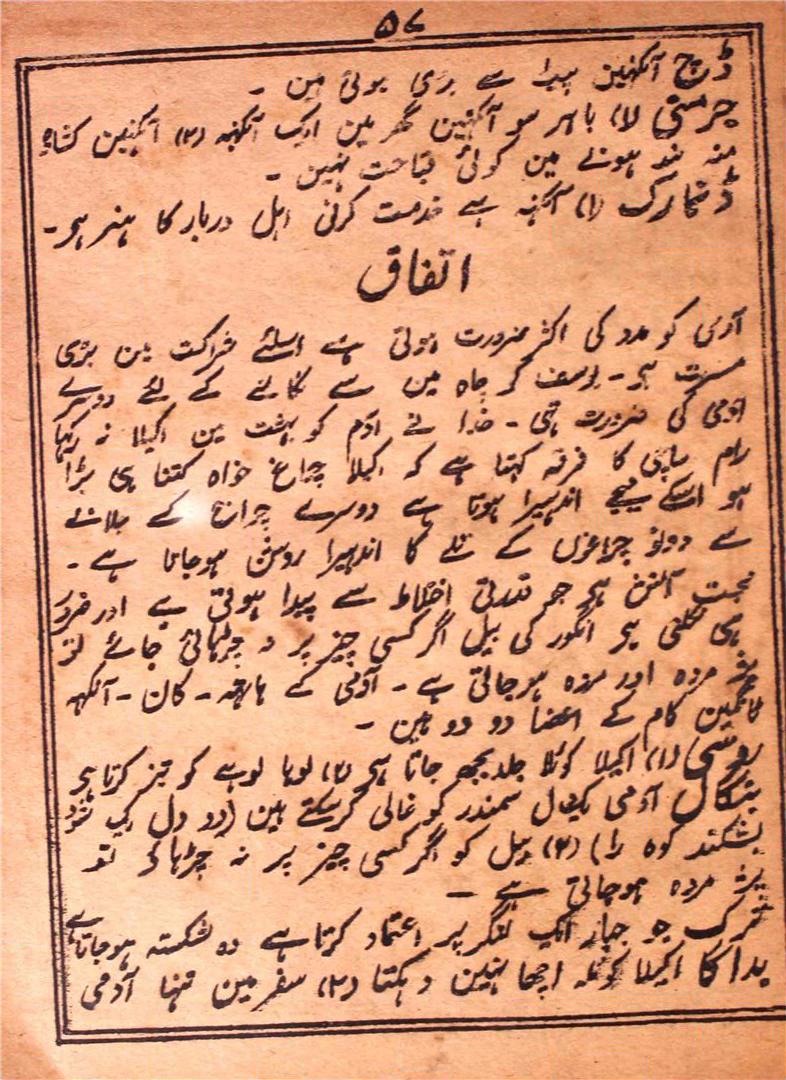 ۵۷
ڈچ آنکہین پیٹ سے بڑی ہوتی ہین ۔
جرمنی (۱) باہر سو آنکہین گھر مین ایک آنکہہ (۲) آنکہین کشادہ
منہ بند ہونے مین کوئی قباحت نہین ۔
ڈنمارک (۱) آنکہہ سے خدمت کرنی اہل دربار کا ہنر ہے ۔
اتفاق
آدمی کو مدد کی اکثر ضرورت ہوتی ہے اسلئے شراکت مین بڑی
مسرت ہے ۔ یوسف کو چاہ مین سے نکالنے کے لئے دوسرے
آدمی کی ضرورت تہی ۔ خدا نے آدم کو بہشت مین اکیلا نہ رکہا
رام کا فرقہ کہتا ہے کہ اکیلا چراغ خواہ کتنا ہی بڑا
ہو اسکے نیچے اندہیرا ہوتا ہے دوسرے چراغ کے جلانے
سے دونو چراغون کے تلے کا اندہیرا روشن ہوجاتا ہے ۔
محبت آتش ہے جو قدرتی اختلاط سے پیدا ہوتی ہے اور ضرور
ہی نکلتی ہے انگور کی بیل اگر کسی چیز پر نہ چڑہائی جائے تو
پژ مردہ اور مردہ ہوجاتی ہے ۔ آدمی کے ہاتھہ ۔ کان ۔ آنکہہ
ٹانگین کام کے اعضا دو دو ہین ۔
روسی (۱) اکیلا کوئلا جلد بجھ جاتا ہے (۲) لوہا لوہے کو تیز کرتا ہے
بنگال آدمی یکدل سمندر کو خالی کرسکتے ہین (دو دل یک شود
بشکند کوہ را) (۲) بیل کو اگر کسی چیز پر نہ چڑہاؤ تو
پژ مردہ ہوجاتی ہے ۔
ترک جو جہاز ایک لنگر پر اعتماد کرتا ہے وہ شکستہ ہوجاتا ہے
اکیلا کوئلہ اچھا نہین دہکتا (۲) سفر مین تنہا آدمی